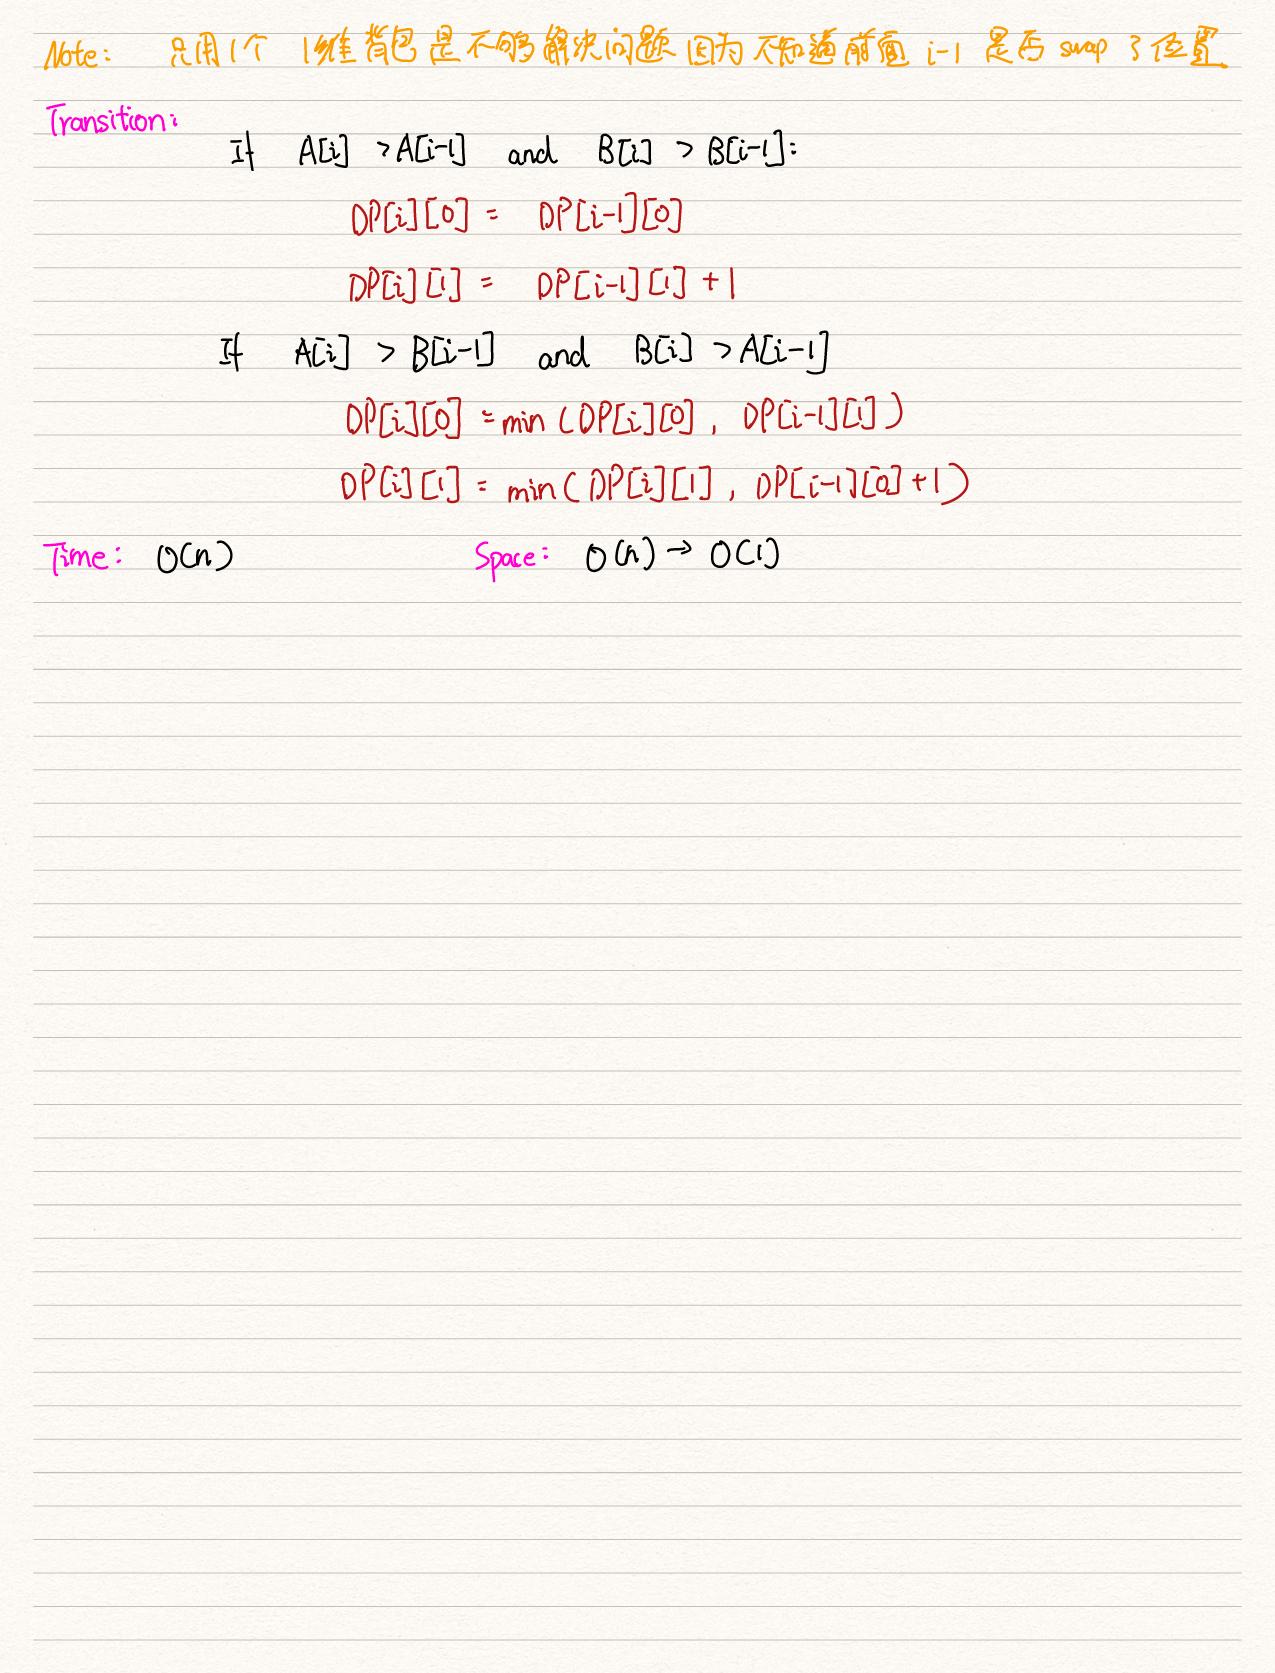 Note: 只用1个 1维背包是不够解决问题 因为不知道前面 i-1 是否 swap 了位置
Transition:
If A[i] > A[i-1] and B[i] > B[i-1]:
DP[i][0] = DP[i-1][0]
DP[i][1] = DP[i-1][1] + 1
If A[i] > B[i-1] and B[i] > A[i-1]
DP[i][0] = min (DP[i][0], DP[i-1][1])
DP[i][1] = min (DP[i][1], DP[i-1][0] + 1)
Time: O(n) Space: O(n) → O(1)